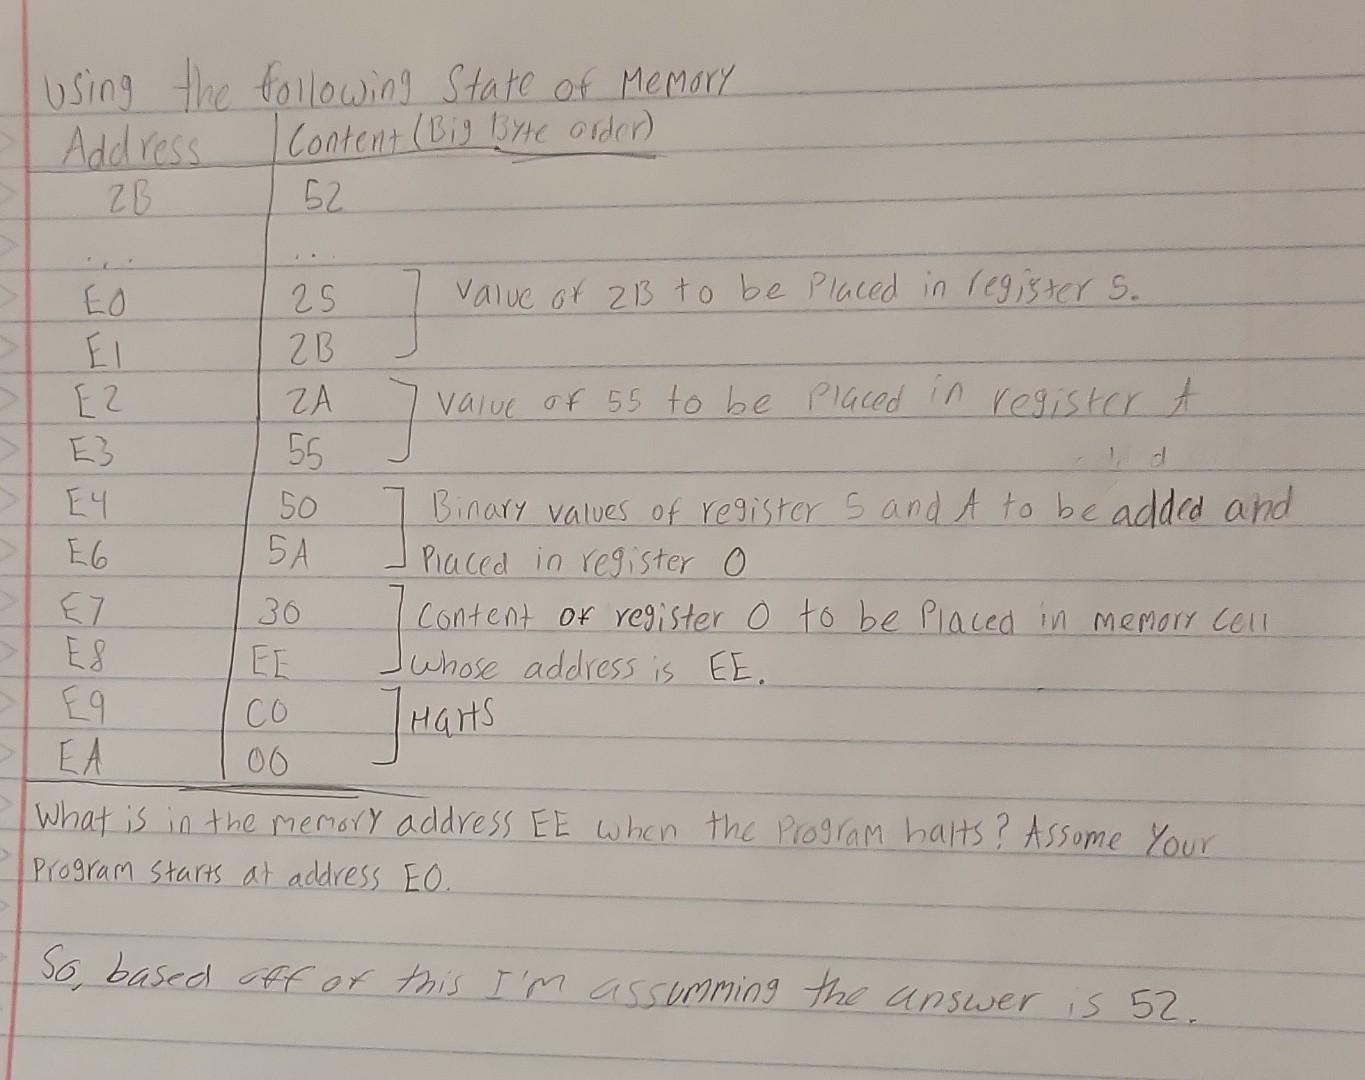 Using the following State of Memory
Address | Content (Big Byte order)
2B 52
... ...
E0 25 Value of 2B to be Placed in register 5.
E1 2B
E2 2A Value of 55 to be Placed in register A
E3 55
E4 50 Binary values of register 5 and A to be added and
E6 5A Placed in register 0
E7 30 Content of register 0 to be Placed in memory cell
E8 EE whose address is EE.
E9 C0 Halts
EA 00
What is in the memory address EE when the Program halts? Assume Your
Program starts at address E0.
So, based off of this I'm assumming the answer is 52.